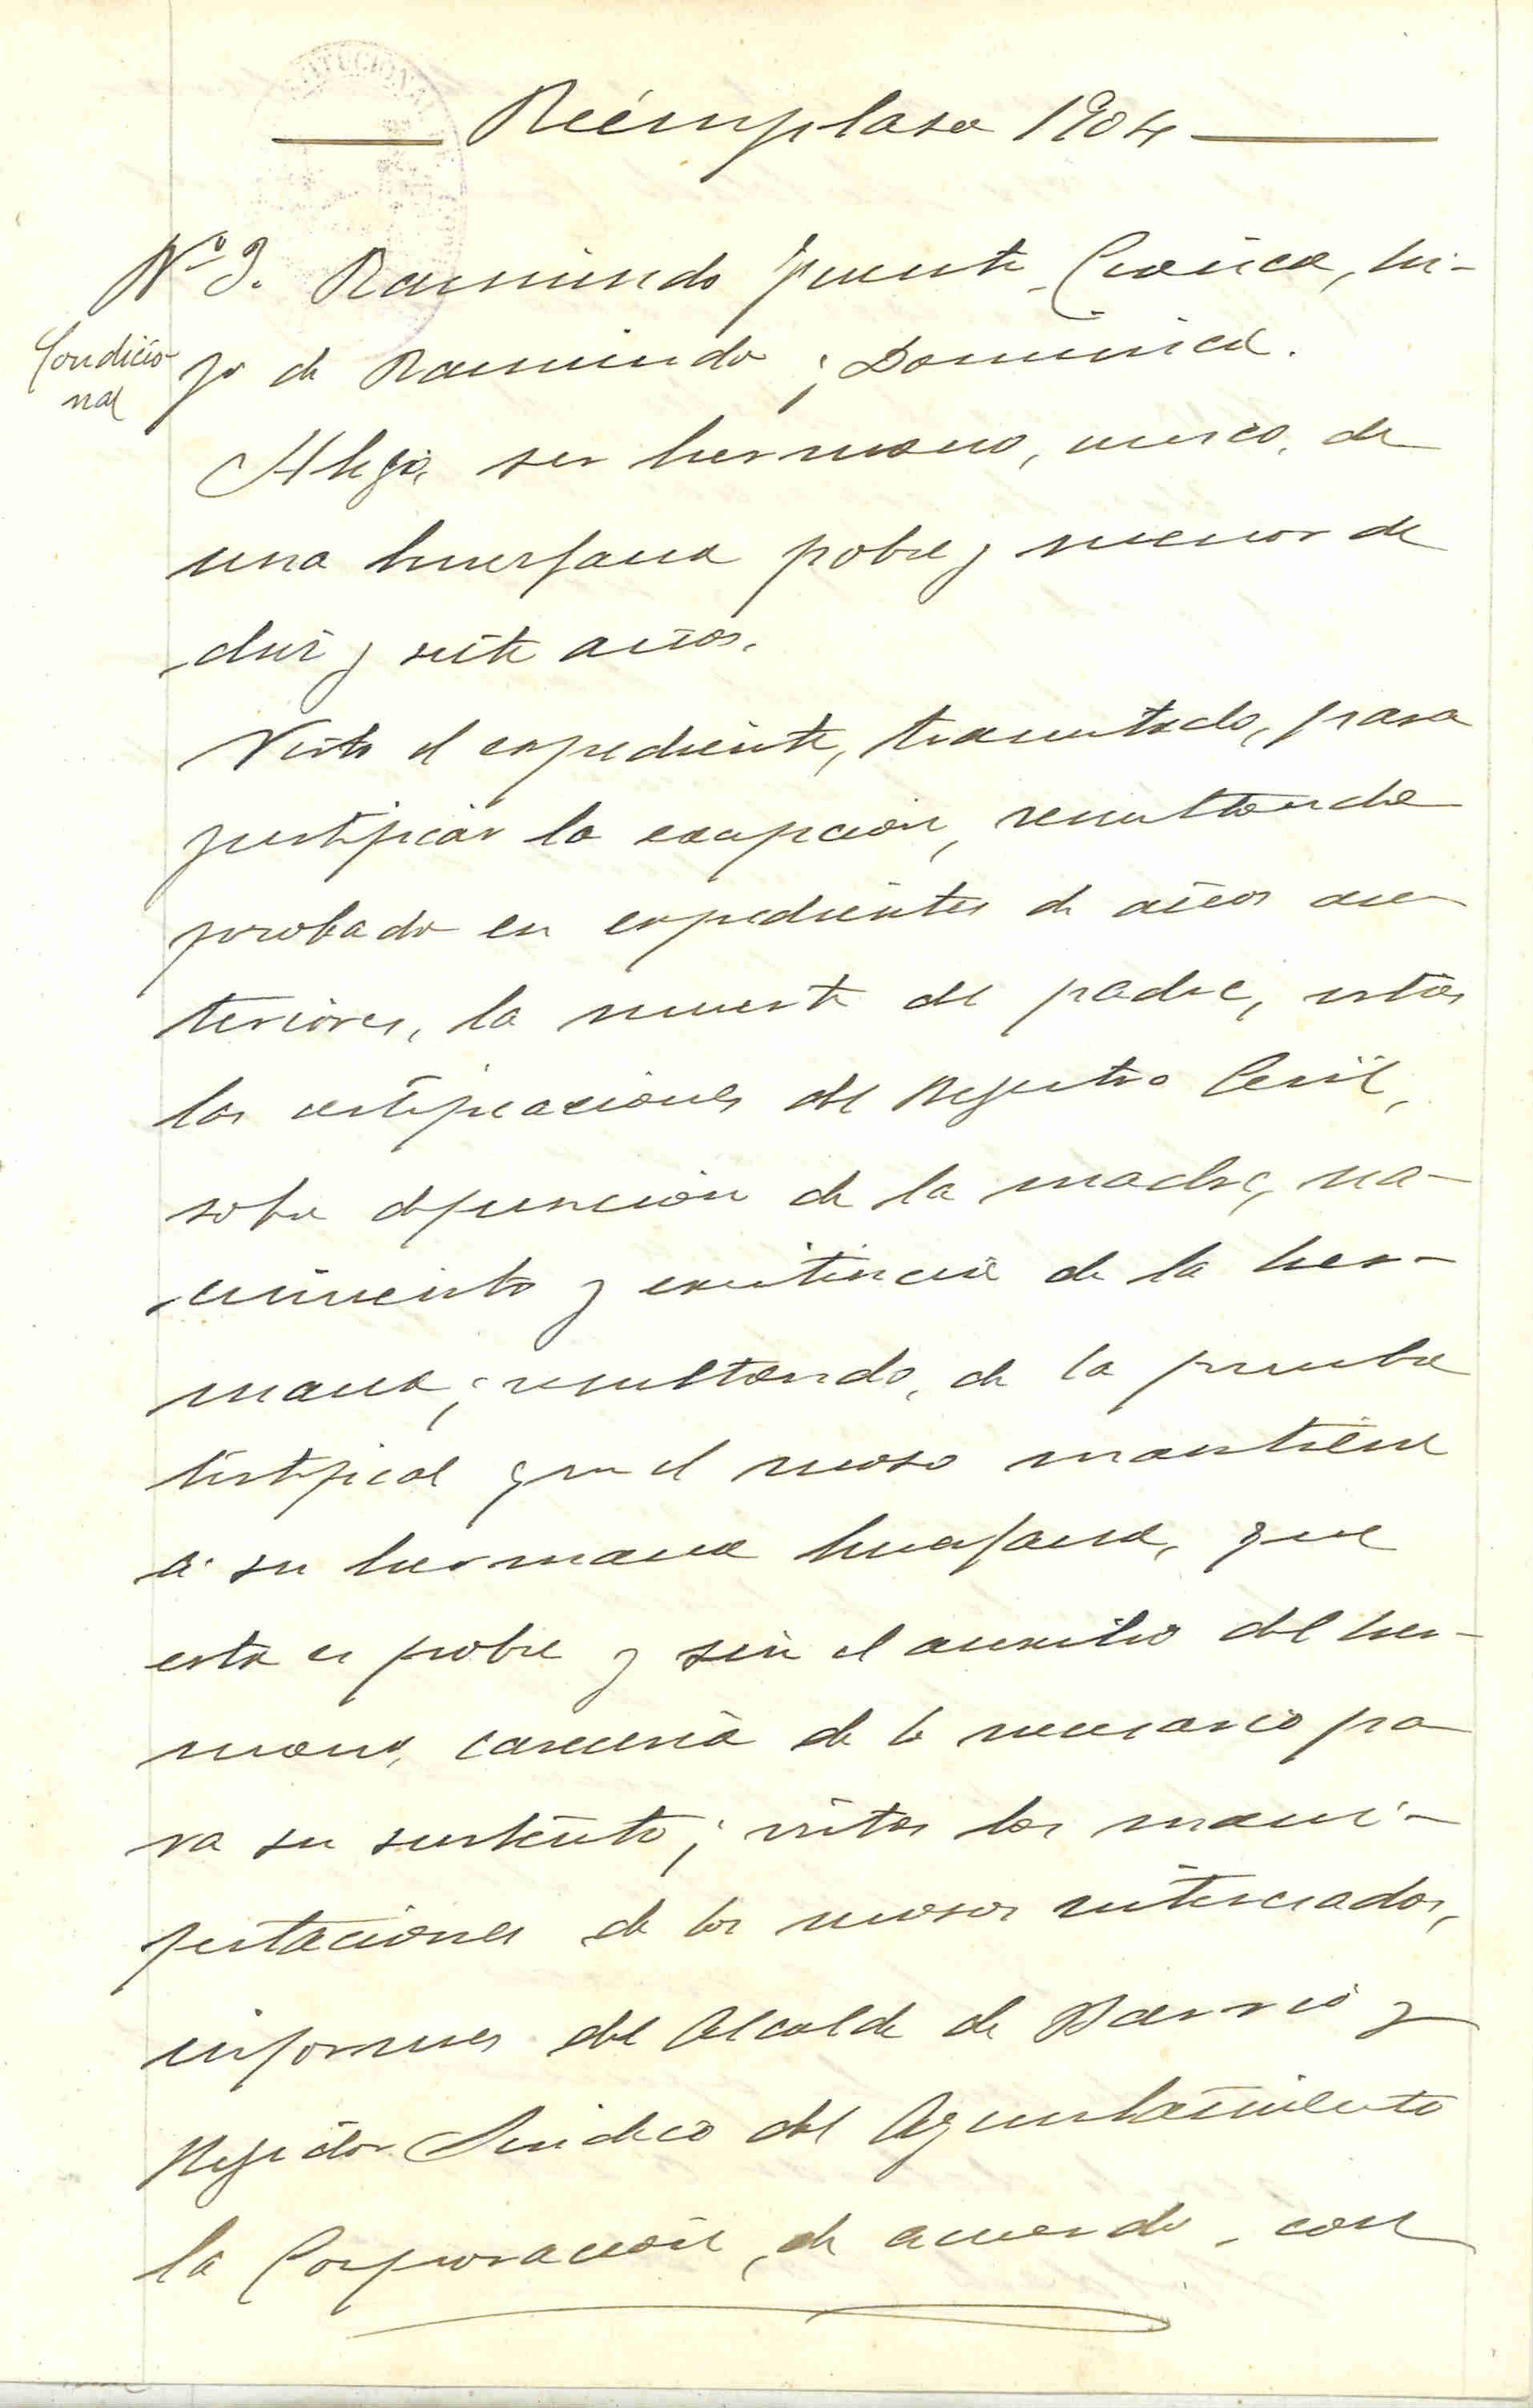 Reémplaso 1904
Nº 3. Raimundo Puente, hi-
Condicio-
nal
jo de Raimundo y Dominica.
Alega, ser hermano, unico, de
una huerfana pobre y menor de
diez y siete años.
Visto el expediente, tramitado, para
justificar la excepcion, resultando
probado en expedientes de años an-
teriores, la muerte del padre, vistas
las certificaciones del Registro Civil,
sobre defuncion de la madre, na-
cimiento y existencia de la her-
mana; resultando, de la prueba
testifical que el moso mantiene
a su hermana huerfana, que
esta es pobre y sin el auxilio del her-
mano, careceria de lo necesario pa
ra su sustento; vistas las mani-
festaciones de los mosos interesados,
informes del Alcalde de Barrio y
Regidor Sindico del Ayuntamiento
la Corporacion, de acuerdo, con